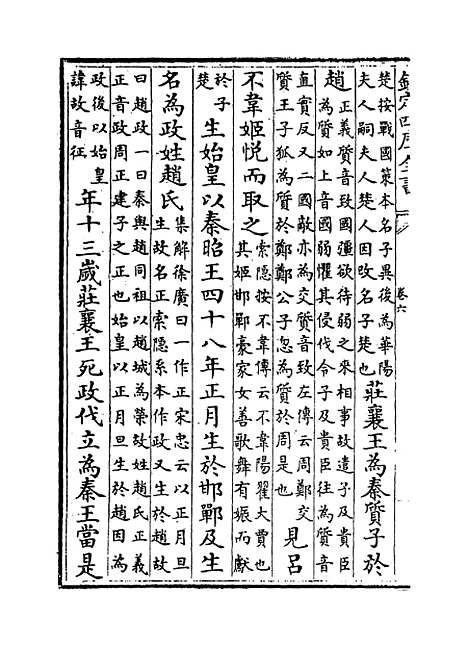 欽定四庫全書 卷六
楚按戰國策本名子異後為華陽
夫人嗣夫人楚人因改名子楚也
莊襄王為秦質子於
趙
正義質音致國彊欲待弱之來相事故遣子及貴臣
為質如上音國弱懼其侵伐令子及貴臣往為質音
直實反又二國敵亦為交質音致左傳云周鄭交
質王子狐為質於鄭鄭公子忽為質於周是也
見呂
不韋姬悅而取之
索隱按不韋傳云不韋陽翟大賈也
其姬邯鄲豪家女善歌舞有娠而獻
於子
楚
生始皇以秦昭王四十八年正月生於邯鄲及生
名為政姓趙氏
集解徐廣曰一作正宋忠云以正月旦
生故名正索隱系本作政又生於趙故
曰趙政一曰秦與趙同祖以趙城為榮故姓趙氏正義
正音政周正建子之正也始皇以正月旦生於趙因為
政後以始皇
諱故音征
年十三歲莊襄王死政代立為秦王當是